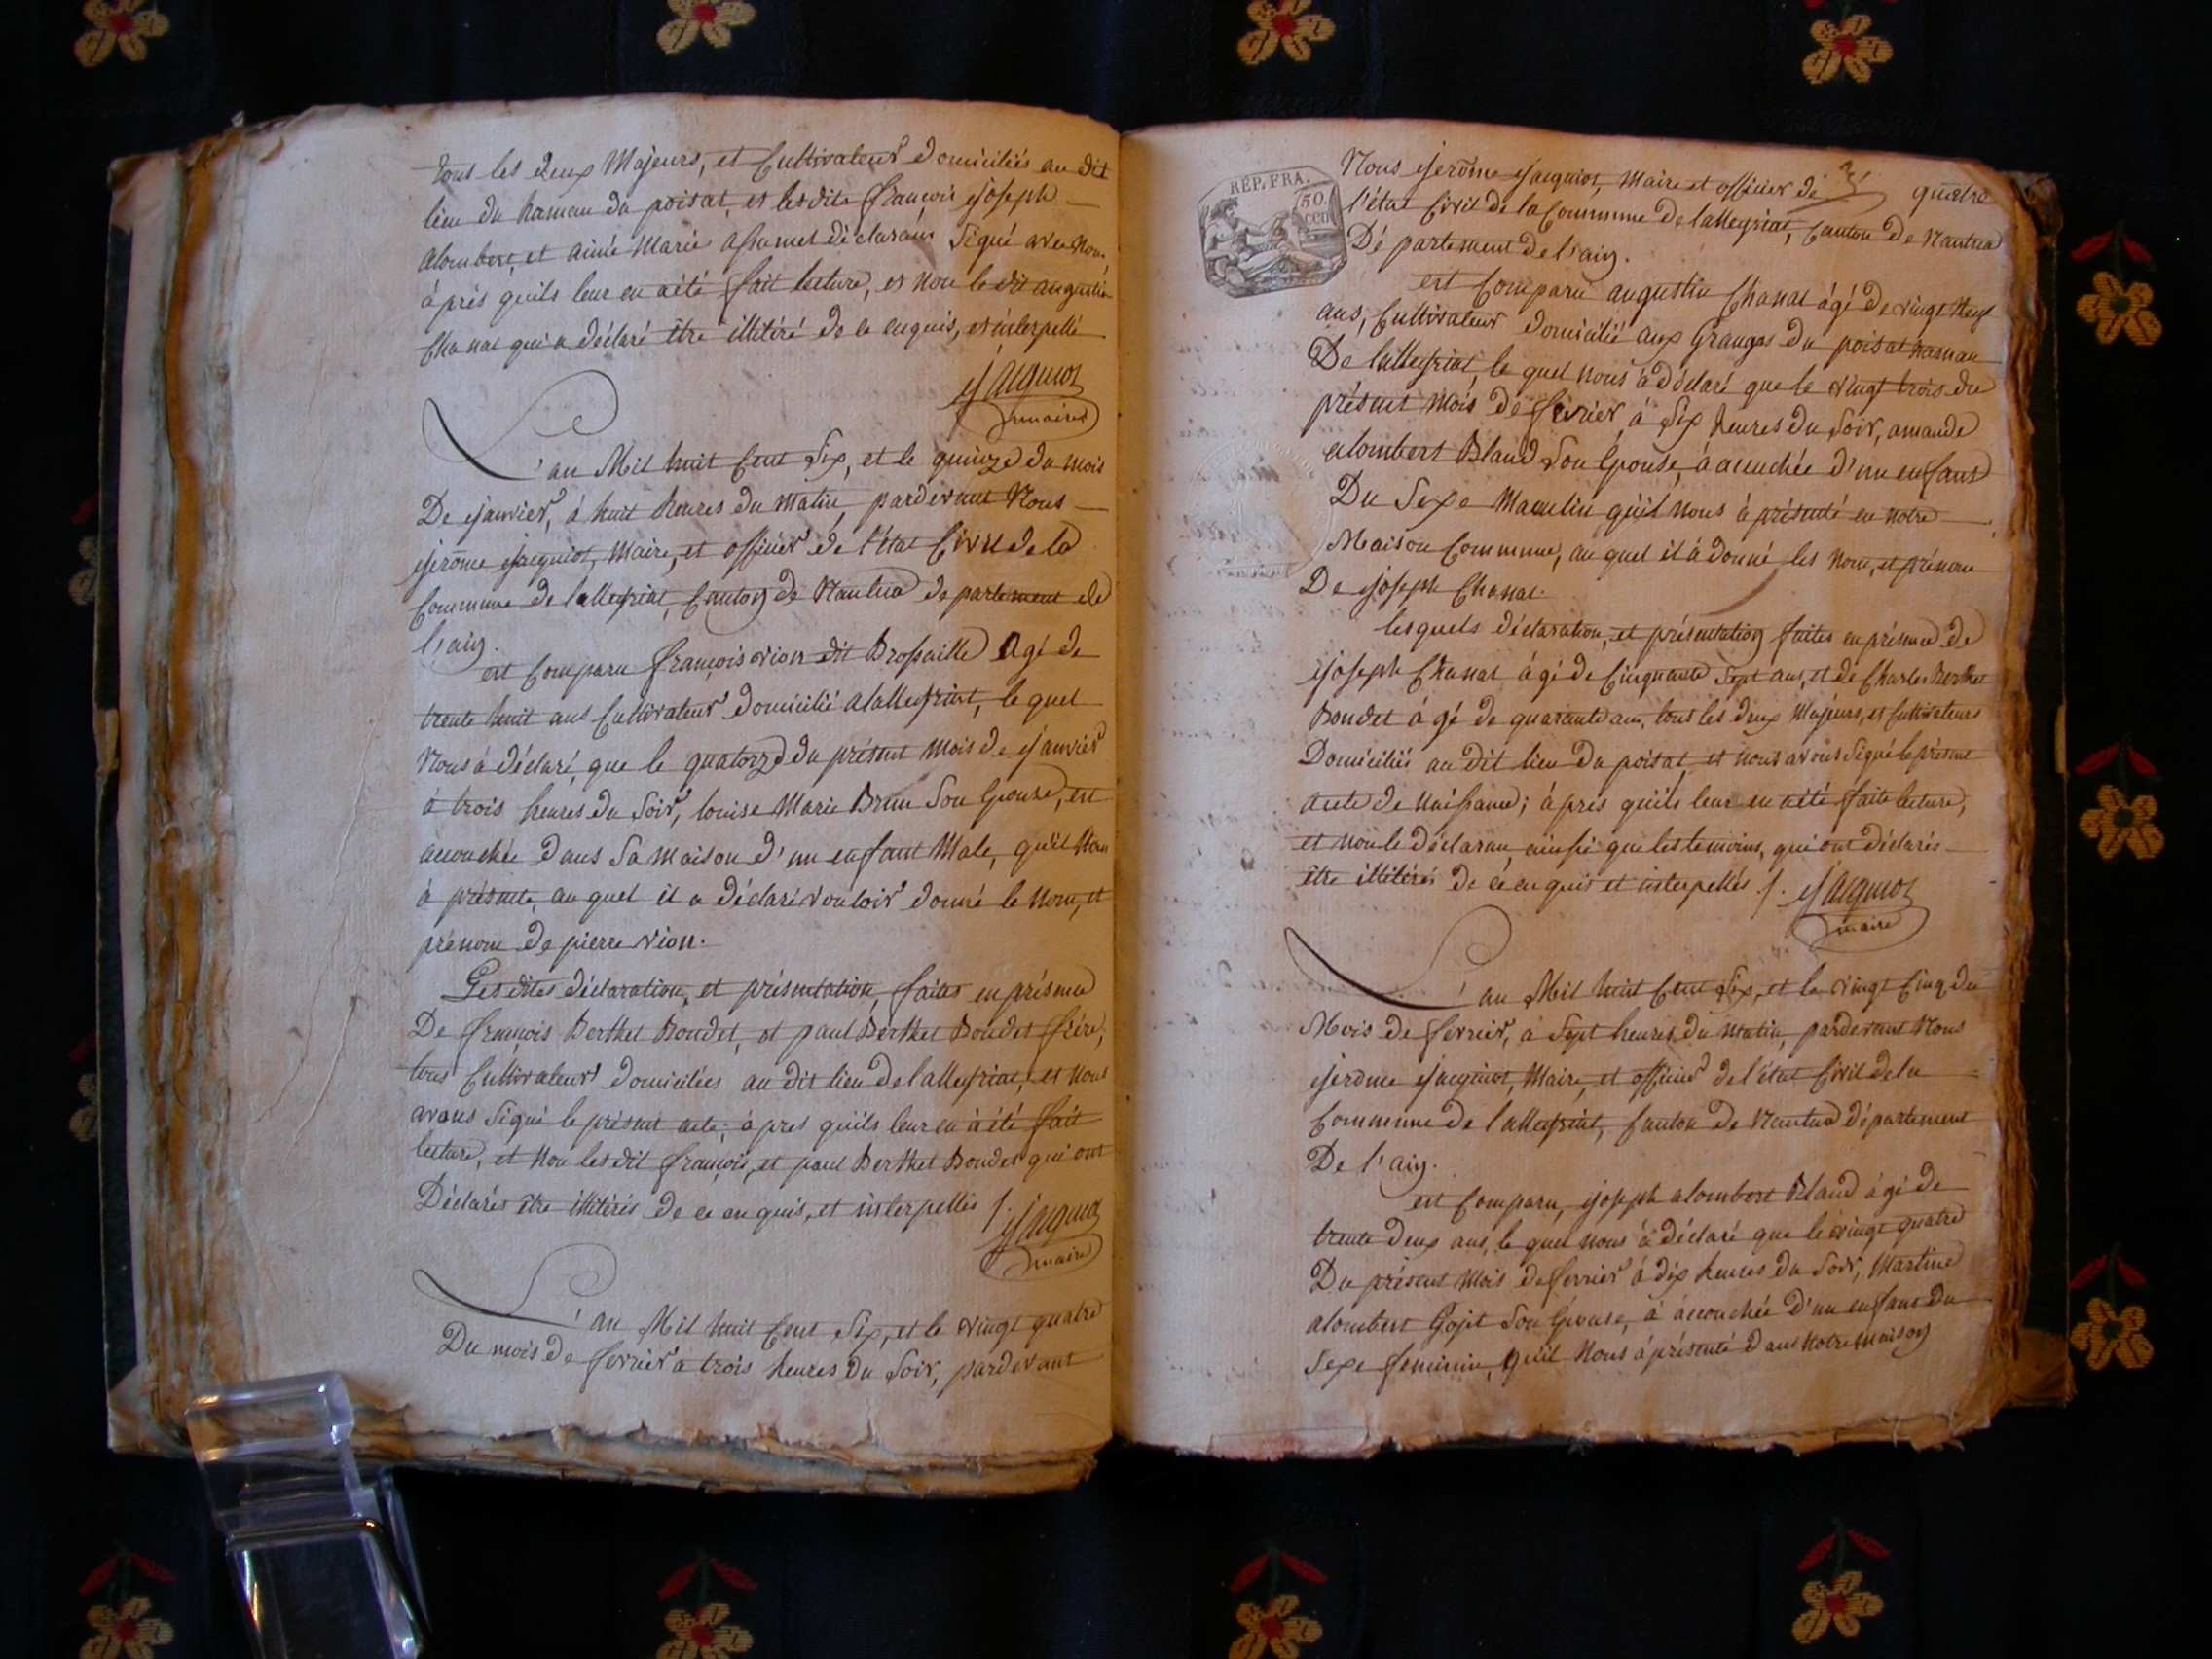 tous les deux Majeurs, et Cultivateurs domiciliés au dit
lieu du hameau du poisat, et lesdits françois joseph
alombert, et aimé Marie déclarant Signé avec Nous
àprés quils leur en aété fait lecture, et non le dit augustin
Chanat qui a déclaré être illitéré de ce enquis, et interpellé
jacquiot
maire
L'an Mil huit Cent Six, et le quinze du mois
De janvier, à huit heures du matin, pardevant Nous
jerôme jacquiot, Maire, et officier de l'état Civil de la
Commune de lalleyriat, Canton de Nantua departement de
l'ain.
est Comparu françois vion dit Brossaille Agé de
trente huit ans Cultivateur domicilié alalleyriat, le quel
Nous à déclaré, que le quatorze du présent mois de janvier
à trois heures du Soir, louise Marie Brun Son Epouse, est
accouchée dans Sa maison d'un enfant Male, qu'il Nous
à présenté, au quel il a déclaré vouloir donné le Nom, et
prénom de pierre vion.
Lesdites déclaration, et présentation, faites en présence
De françois Berthet Bondet, et paul Berthet Bondet frére,
tous Cultivateurs domiciliées au dit lieu de lalleyriat, et Nous
avons Signé le présent acte, à pres quïls leur en à été fait
lecture, et Non lesdit françois, et paul Berthet Bondet qui ont
Déclarés être illitérés de ce enquis, et interpellés /. jacquiot
maire
L'an Mil huit Cent Six, et le vingt quatre
Du mois de fevrier à trois heures du Soir, pardevant
quatre
RÉP. FRA.
50.
CEN
Nous jerôme jacquiot, Maire et officier de
l'état Civil de la Commune de lalleyriat, Canton de Nantua
Dé partement de l'ain.
est Comparu augustin Chanat àgé de vingt Neuf
ans, Cultivateur domicilié aux Granges du poisat hamau
De lalleyriat, le quel nous à déclaré que le vingt trois du
présent mois de fevrier, à Six heures du Soir, amande
alombert Bland Son Epouse, à accuchée d'un enfant
Du Sexe Maculin qüil nous à présenté en notre
Maison Commune, au quel il à donné les Nom, et prénom
De joseph Chanat.
lesquels déclaration, et présentation faites en présence de
joseph Chanat àgé de Cinquante Sept ans, et de Charles Berthet
Bondet àgé de quarante ans, tous les deux Majeurs, et Cultivateurs
Domiciliés au dit lieu du poisat, et nous avons Signé le présent
acte de Naissance; àprés qüils leur en aété faite lecture,
et non le déclarant, ainsie que les temoins, qui ont déclarés
être illitérés de ce en quis et interpellés /. jacquiot
maire
L'an Mil huit Cent Six, et le vingt Cinq du
Mois de fevrier, à Sept heures du matin, pardevant Nous
jerome jacquiot, Maire, et officier de l'état Civil de la
Commune de lalleyriat, Canton de Nantua département
De l'ain.
est Comparu, joseph alombert Bland àgé de
trente deux ans, le quel nous à déclaré que le vingt quatre
Du présent Mois de fevrier à dix heures du Soir, Martine
alombert Gojet Son Epouse, à accouchée d'un enfant du
Sexe feminin, quil Nous à présenté dans Notre maison